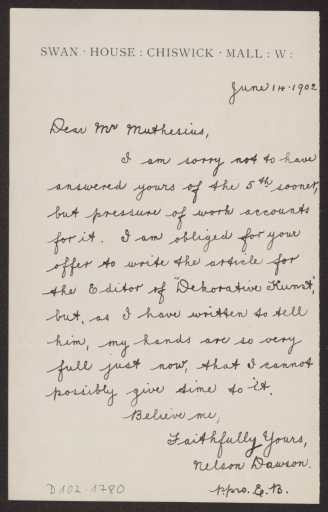 SWAN · HOUSE : CHISWICK · MALL : W :
June 14 · 1902
Dear Mr Muthesius,
I am sorry not to have
answered yours of the 5th sooner,
but pressure of work accounts
for it. I am obliged for your
offer to write the article for
the Editor of "Dekorative Kunst",
but, as I have written to tell
him, my hands are so very
full just now, that I cannot
possibly give time to it.
Believe me,
Faithfully Yours,
Nelson Dawson.
ppro. E. B.
D102-1780